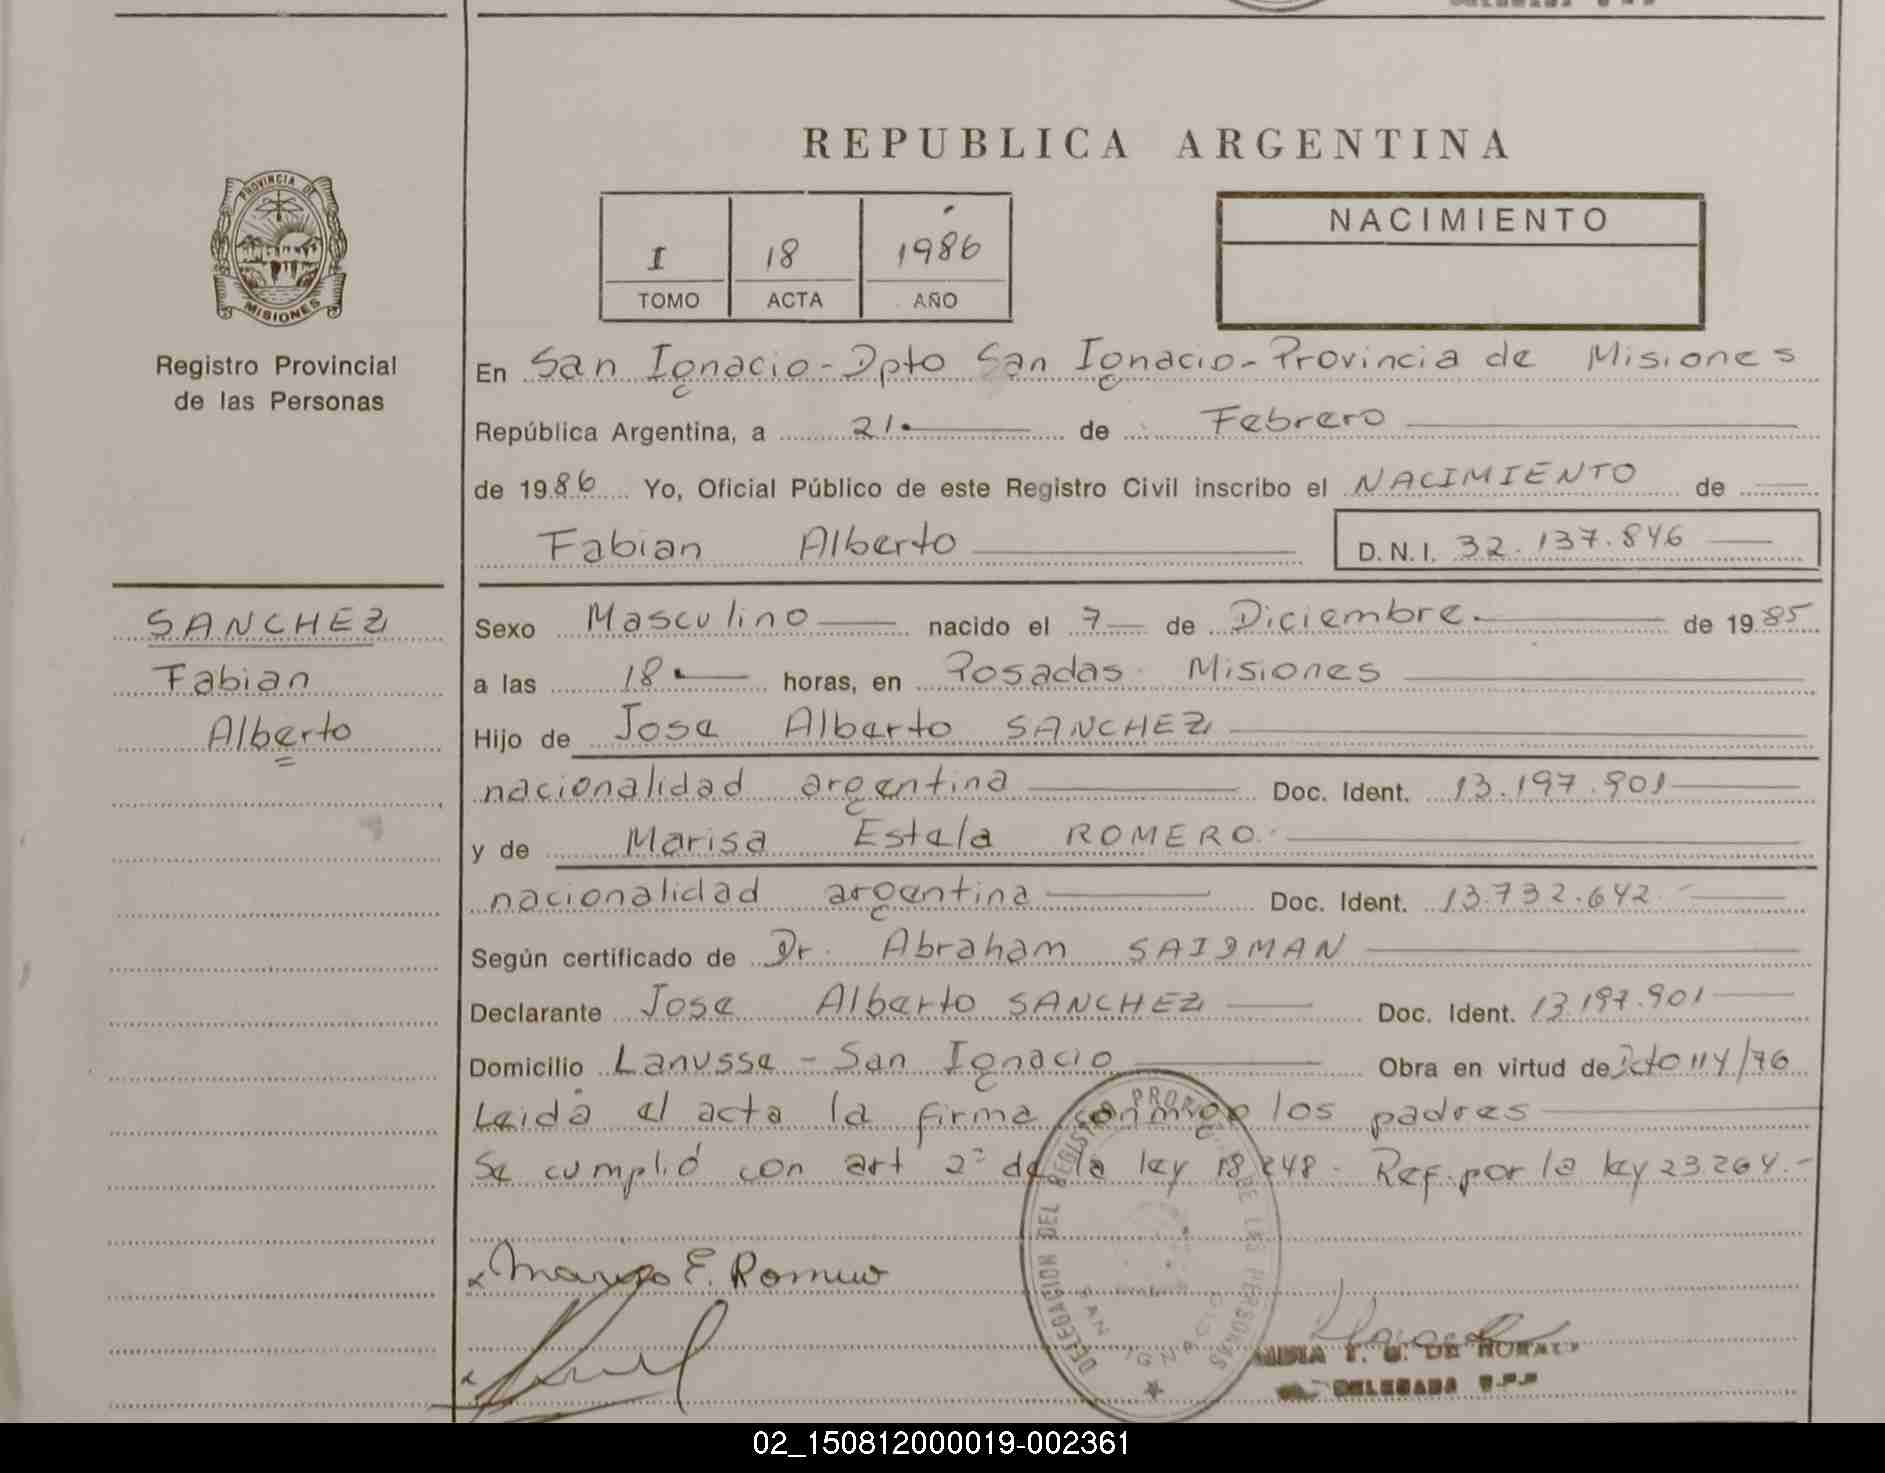 REPUBLICA ARGENTINA
PROVINCIA DE
MISIONES
Registro Provincial
de las Personas
I 18 1986
TOMO ACTA AÑO
NACIMIENTO
En San Ignacio - Dpto San Ignacio - Provincia de Misiones
República Argentina, a 21 de Febrero
de 1986 Yo, Oficial Público de este Registro Civil inscribo el NACIMIENTO de
Fabian Alberto D.N.I. 32.137.846
SANCHEZ
Fabian
Alberto
Sexo Masculino nacido el 7 de Diciembre de 1985
a las 18 horas, en Posadas Misiones
Hijo de Jose Alberto SANCHEZ
nacionalidad argentina Doc. Ident. 13.197.901
y de Marisa Estela ROMERO
nacionalidad argentina Doc. Ident. 13.732.642
Según certificado de Dr. Abraham SAIDMAN
Declarante Jose Alberto SANCHEZ Doc. Ident. 13.197.901
Domicilio Lanusse - San Ignacio Obra en virtud de Dcto 114/76
Leida el acta la firma conmigo los padres
Se cumplió con art 2º de la ley 18.248 - Ref. por la ley 23.264.-
E. Romero
DELEGACION DEL REGISTRO PROV. DE LAS PERSONAS
SAN IGNACIO
DELEGADA
02_150812000019-002361